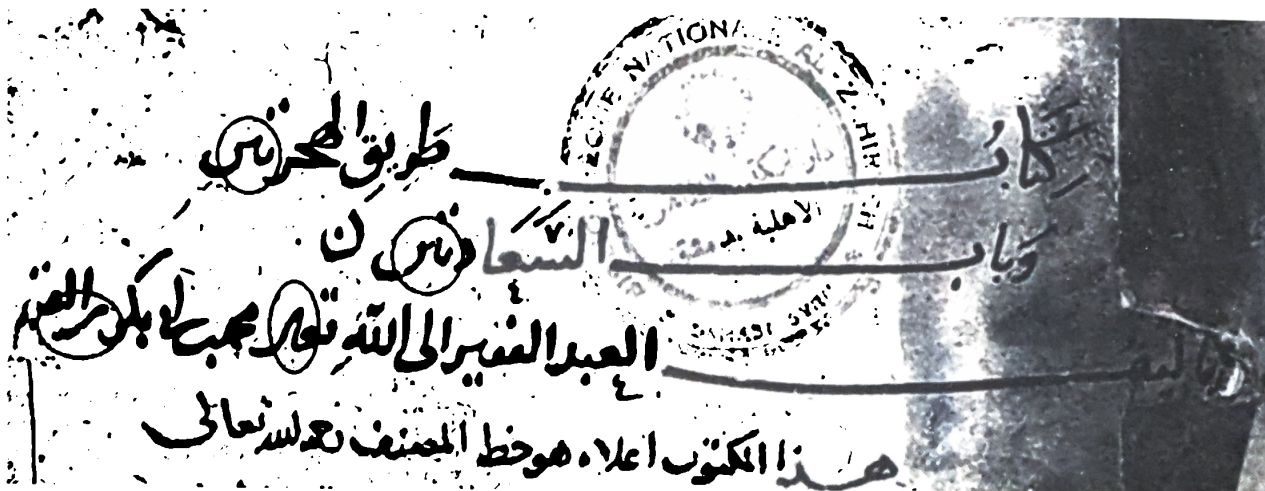 كتاب طريق الهجرتين
وباب السعادتين
تاليف العبد الفقير الى الله تعالى محمد بن ابي بكر بن القيم
هذا المكتوب اعلاه هو خط المصنف رحمه الله تعالى
NATIONALE
الاهلية بدمشق